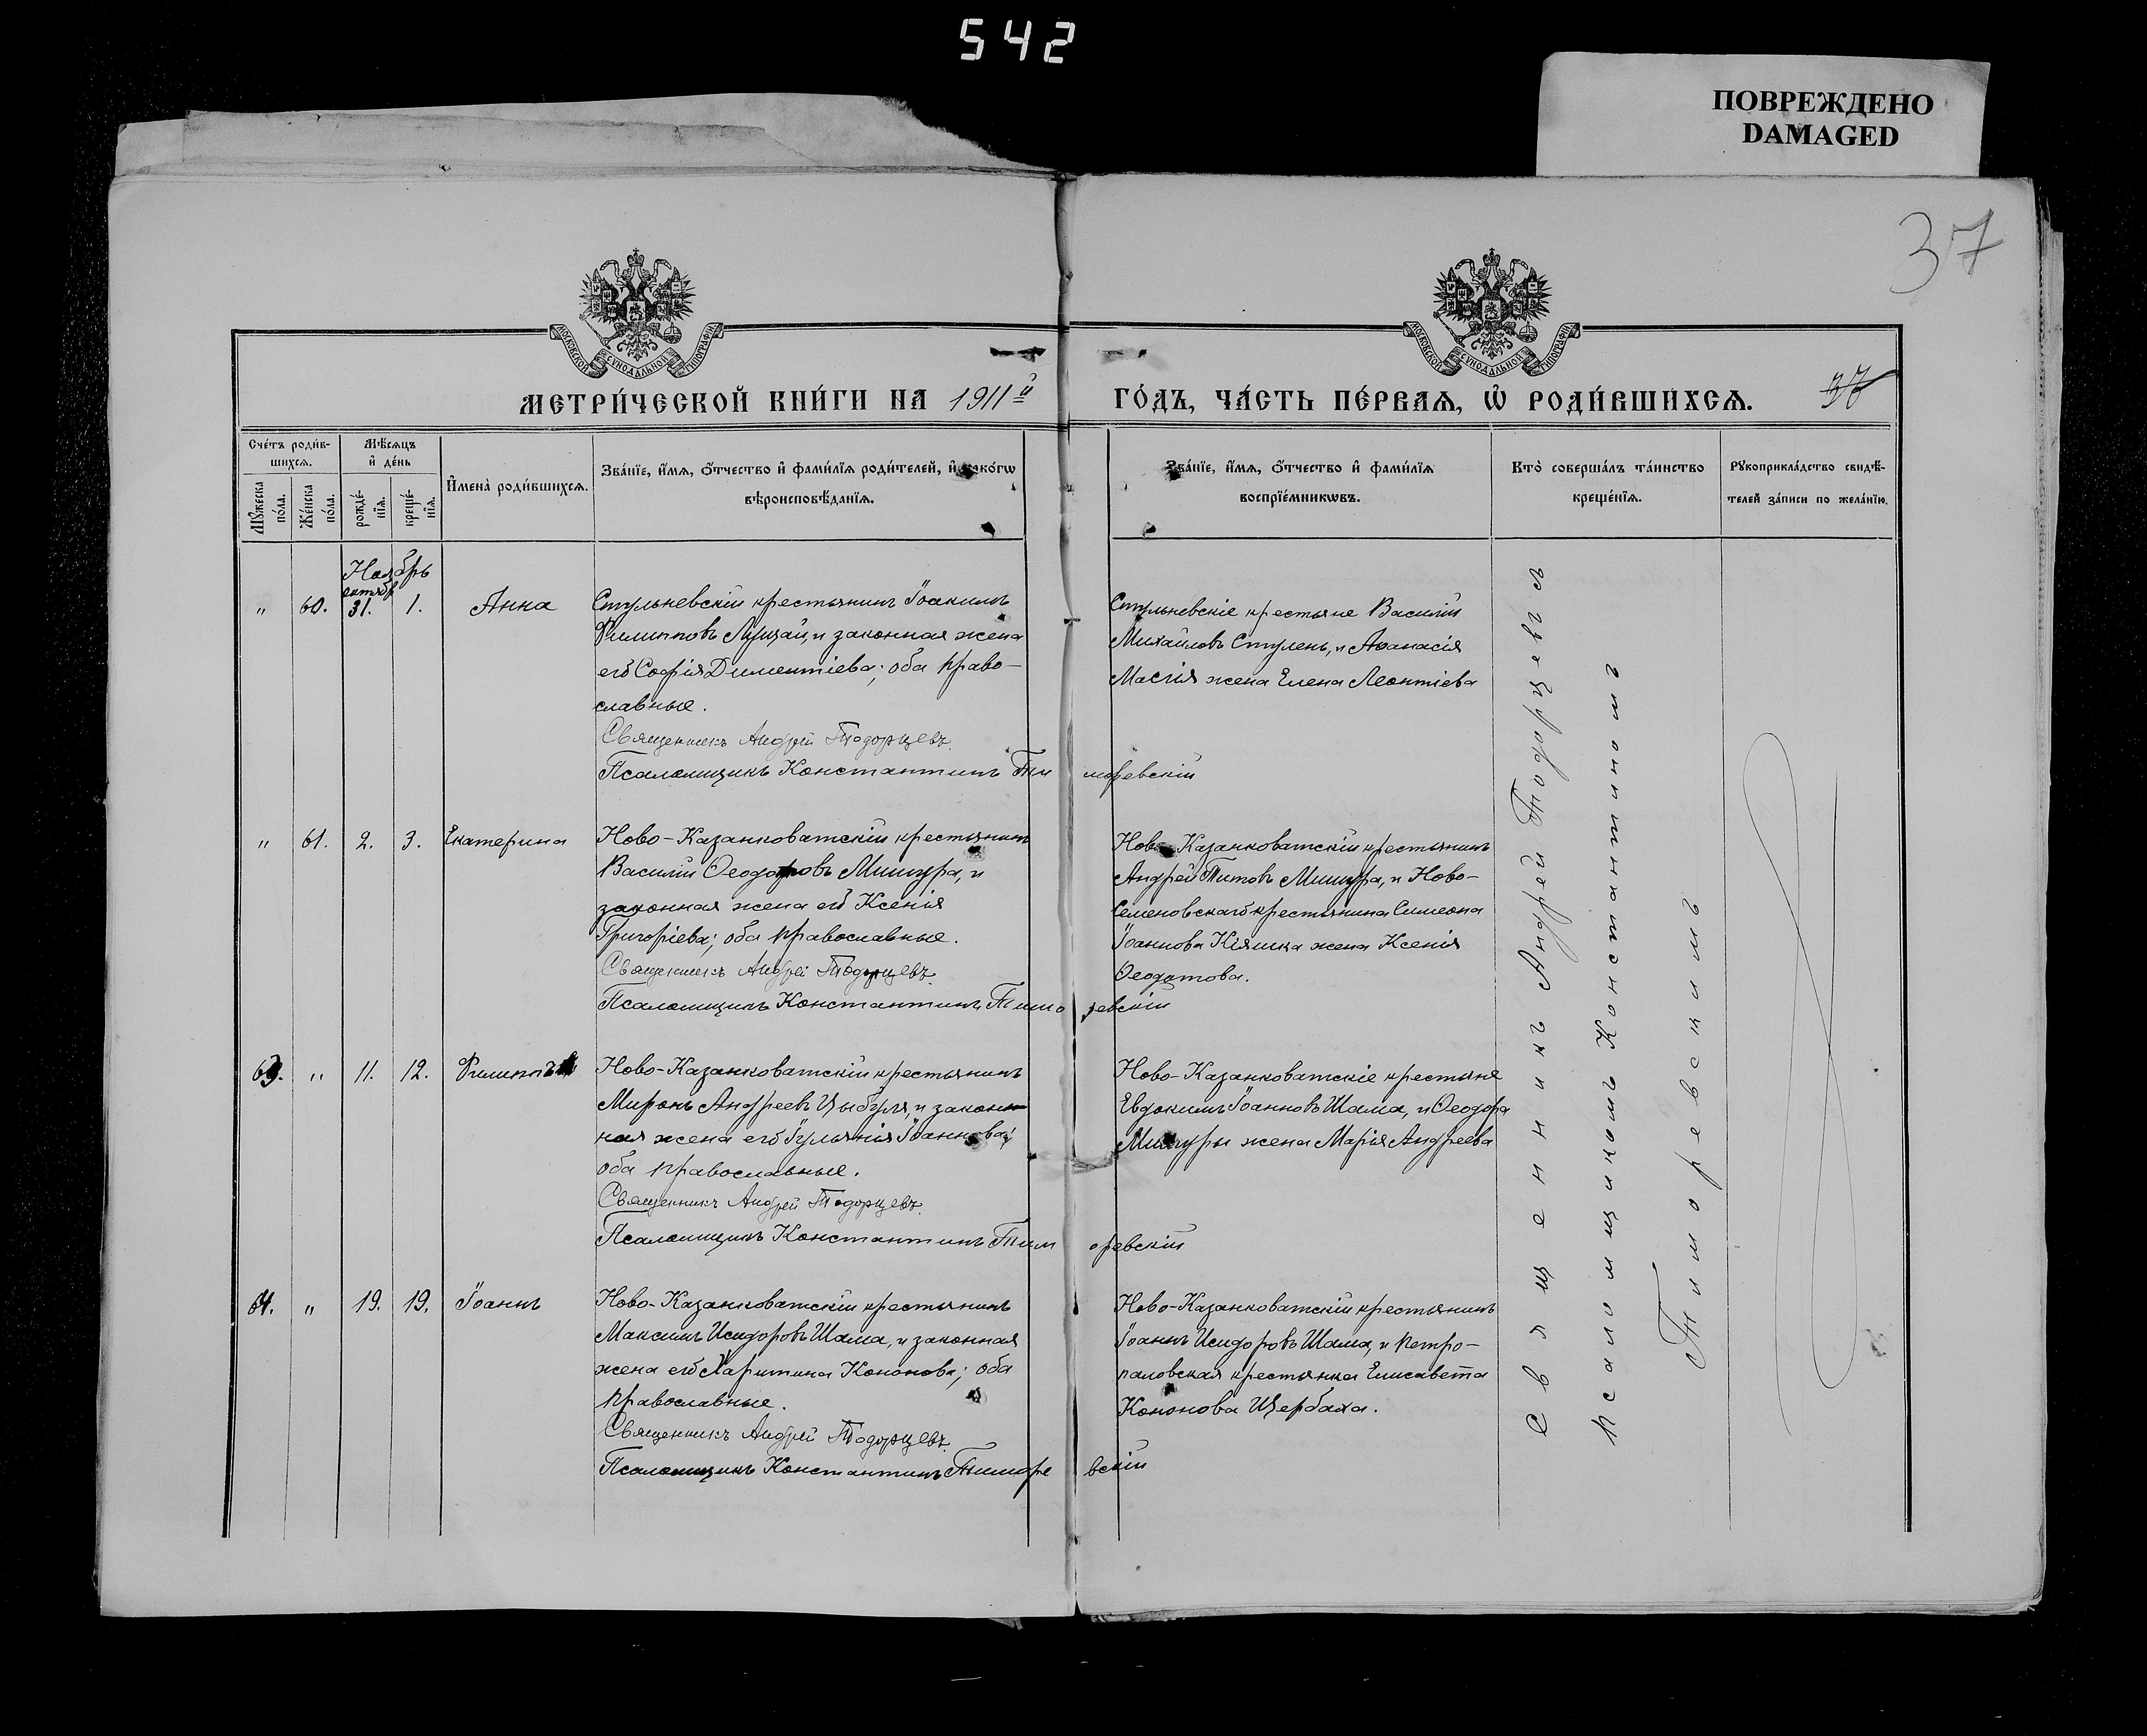 542
ПОВРЕЖДЕНО
DAMAGED
37
МОСКОВСКОЙ СѴНОДАЛЬНОЙ ТИПОГРАФІИ
МОСКОВСКОЙ СѴНОДАЛЬНОЙ ТИПОГРАФІИ
МЕТРИ́ЧЕСКОЙ КНИ́ГИ НА 1911й ГО́ДЪ, ЧА́СТЬ ПЕ́РВАѦ, Ѡ҆ РОДИ́ВШИХСѦ. 37
Сче́тъ роди́в-
шихсѧ.
Мѣ́сѧцъ
и҆ де́нь
Мꙋ́жеска
по́ла.
Же́нска
по́ла.
рожде́-
нїѧ.
креще́-
нїѧ.
И҆мена̀ роди́вшихсѧ.
Зва́нїе, и҆́мѧ, ѻ҆́тчество и҆ фами́лїѧ роди́телей, и҆ како́гѡ
вѣроисповѣ́данїѧ.
Зва́нїе, и҆́мѧ, ѻ҆́тчество и҆ фами́лїѧ
воспрїе́мникѡвъ.
Кто̀ соверша́лъ та́инство
креще́нїѧ.
Рꙋкоприкла́дство свидѣ́-
телей за́писи по жела́нїю.
Ноябрь
октябр
" 60. 31. 1. Анна
Стульневскій крестьянинъ Іоакимъ
Филипповъ Лущай, и законная жена
его Софія Диментіева; оба право-
славные.
Священникъ Андрей Тодорцевъ.
Псаломщикъ Константинъ Тиморевскій
Стульневскіе крестьяне Василій
Михайловъ Стулень, и Аѳанасія
Масгія жена Елена Леонтіева
" 61. 2. 3. Екатерина
Ново-Казанковатскій крестьянинъ
Василій Ѳеодоровъ Мишура, и
законная жена его Ксенія
Григоріева; оба православные.
Священникъ Андрей Тодорцевъ.
Псаломщикъ Константинъ Тиморевскій
Ново-Казанковатскій крестьянинъ
Андрей Титовъ Мишура, и Ново-
Семеновскаго крестьянина Симеона
Іоаннова Кіяшка жена Ксенія
Ѳеодотова.
63. " 11. 12. Филиппъ
Ново-Казанковатскій крестьянинъ
Миронъ Андреевъ Цыбуля, и закон
ная жена его Іуліянія Іоаннова;
оба православные.
Священникъ Андрей Тодорцевъ.
Псаломщикъ Константинъ Тиморевскій
Ново-Казанковатскіе крестьяне
Евдокимъ Іоанновъ Шама, и Ѳеодора
Мишуры жена Марія Андреева
64. " 19. 19. Іоаннъ
Ново-Казанковатскій крестьянинъ
Максимъ Исидоровъ Шама, и законная
жена его Харитина Кононова; оба
православные.
Священникъ Андрей Тодорцевъ.
Псаломщикъ Константинъ Тиморевскій
Ново-Казанковатскій крестьянинъ
Іоаннъ Исидоровъ Шама, и Петро-
павловская крестьянка Елисавета
Кононова Щербаха.
Священникъ Андрей Тодорцевъ съ
псаломщикомъ Константиномъ
Тиморевскимъ